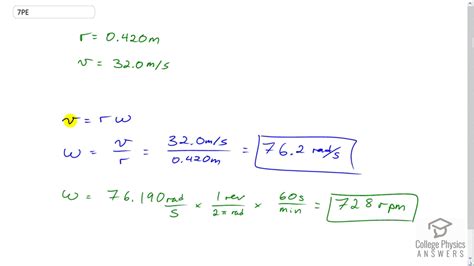 7PE
r = 0.420m
v = 32.0m/s
v = r ω
ω = v/r = 32.0m/s / 0.420m = 76.2 rad/s
ω = 76.190 rad/s × 1 rev/2π rad × 60s/min = 728 rpm
College Physics
ANSWERS